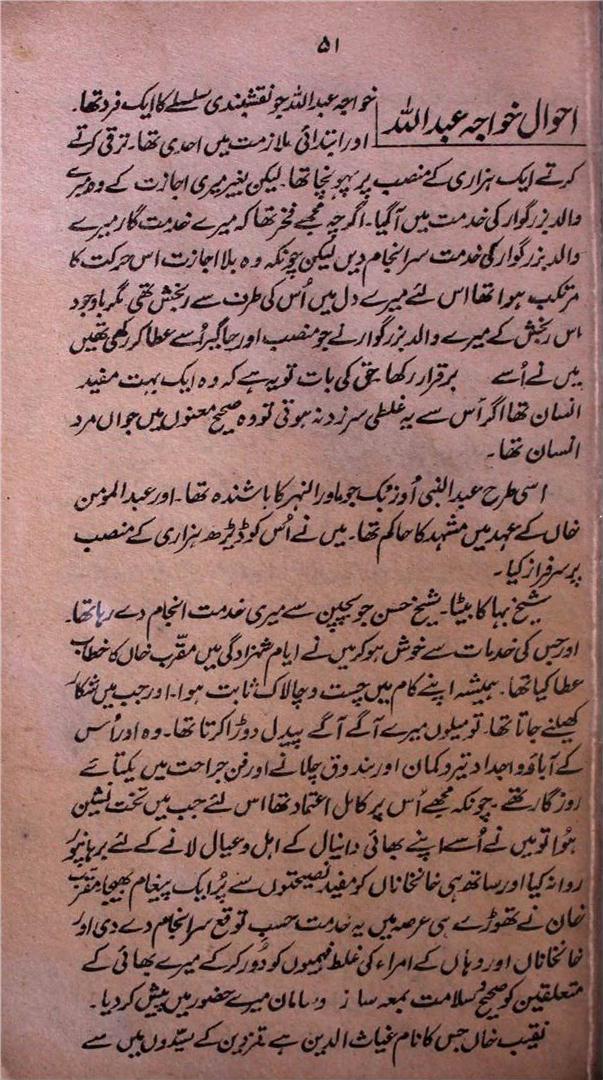 ۵۱
احوال خواجہ عبداللہ
خواجہ عبداللہ جو نقشبندی سلسلے کا ایک فرد تھا۔
اور ابتدائی ملازمت میں احدی تھا۔ ترقی کرتے
کرتے ایک ہزاری کے منصب پر پہونچا تھا۔ لیکن بغیر میری اجازت کے وہ میرے
والد بزرگوار کی خدمت میں آگیا۔ اگرچہ مجھے فخر تھا کہ میرے خدمت گار میرے
والد بزرگوار کی خدمت سرانجام دیں لیکن چونکہ وہ بلا اجازت اس حرکت کا
مرتکب ہوا تھا اس لئے میرے دل میں اُس کی طرف سے رنجش تھی مگر باوجود
اس رنجش کے میرے والد بزرگوار نے جو منصب اور جاگیر اُسے عطا کر رکھی تھیں
میں نے اُسے برقرار رکھا حق کی بات تو یہ ہے کہ وہ ایک بہت مفید
انسان تھا اگر اُس سے یہ غلطی سرزد نہ ہوتی تو وہ صحیح معنوں میں جواں مرد
انسان تھا۔
اسی طرح عبدالنبی اُوزبک جو ماورا النہر کا باشندہ تھا۔ اور عبدالمومن
خاں کے عہد میں مشہد کا حاکم تھا۔ میں نے اُس کو ڈیڑھ ہزاری کے منصب
پر سرفراز کیا۔
شیخ بہا کا بیٹا۔ شیخ حسن جو بچپن سے میری خدمت انجام دے رہا تھا۔
اور جس کی خدمات سے خوش ہو کر میں نے ایام شہزادگی میں مقرب خاں کا خطاب
عطا کیا تھا۔ ہمیشہ اپنے کام میں چست و چالاک ثابت ہوا۔ اور جب میں شکار
کھیلنے جاتا تھا۔ تو میلوں میرے آگے آگے پیدل دوڑا کرتا تھا۔ وہ اور اُس
کے آباؤ و اجداد تیر و کمان اور بندوق چلانے اور فن جراحت میں یکتائے
روزگار تھے۔ چونکہ مجھے اُس پر کامل اعتماد تھا اس لئے جب میں تخت نشین
ہُوا تو میں نے اُسے اپنے بھائی دانیال کے اہل و عیال لانے کے لئے برہانپور
روانہ کیا اور ساتھ ہی خانخاناں کو مفید نصیحتوں سے پُر ایک پیغام بھیجا مقرب
خان نے تھوڑے ہی عرصہ میں یہ خدمت حسب توقع سرانجام دے دی اور
خانخاناں اور وہاں کے امراء کی غلط فہمیوں کو دُور کر کے میرے بھائی کے
متعلقین کو صحیح و سلامت بمعہ ساز و سامان میرے حضور میں پیش کر دیا۔
نقیب خاں جس کا نام غیاث الدین ہے قزوین کے سیّدوں میں سے